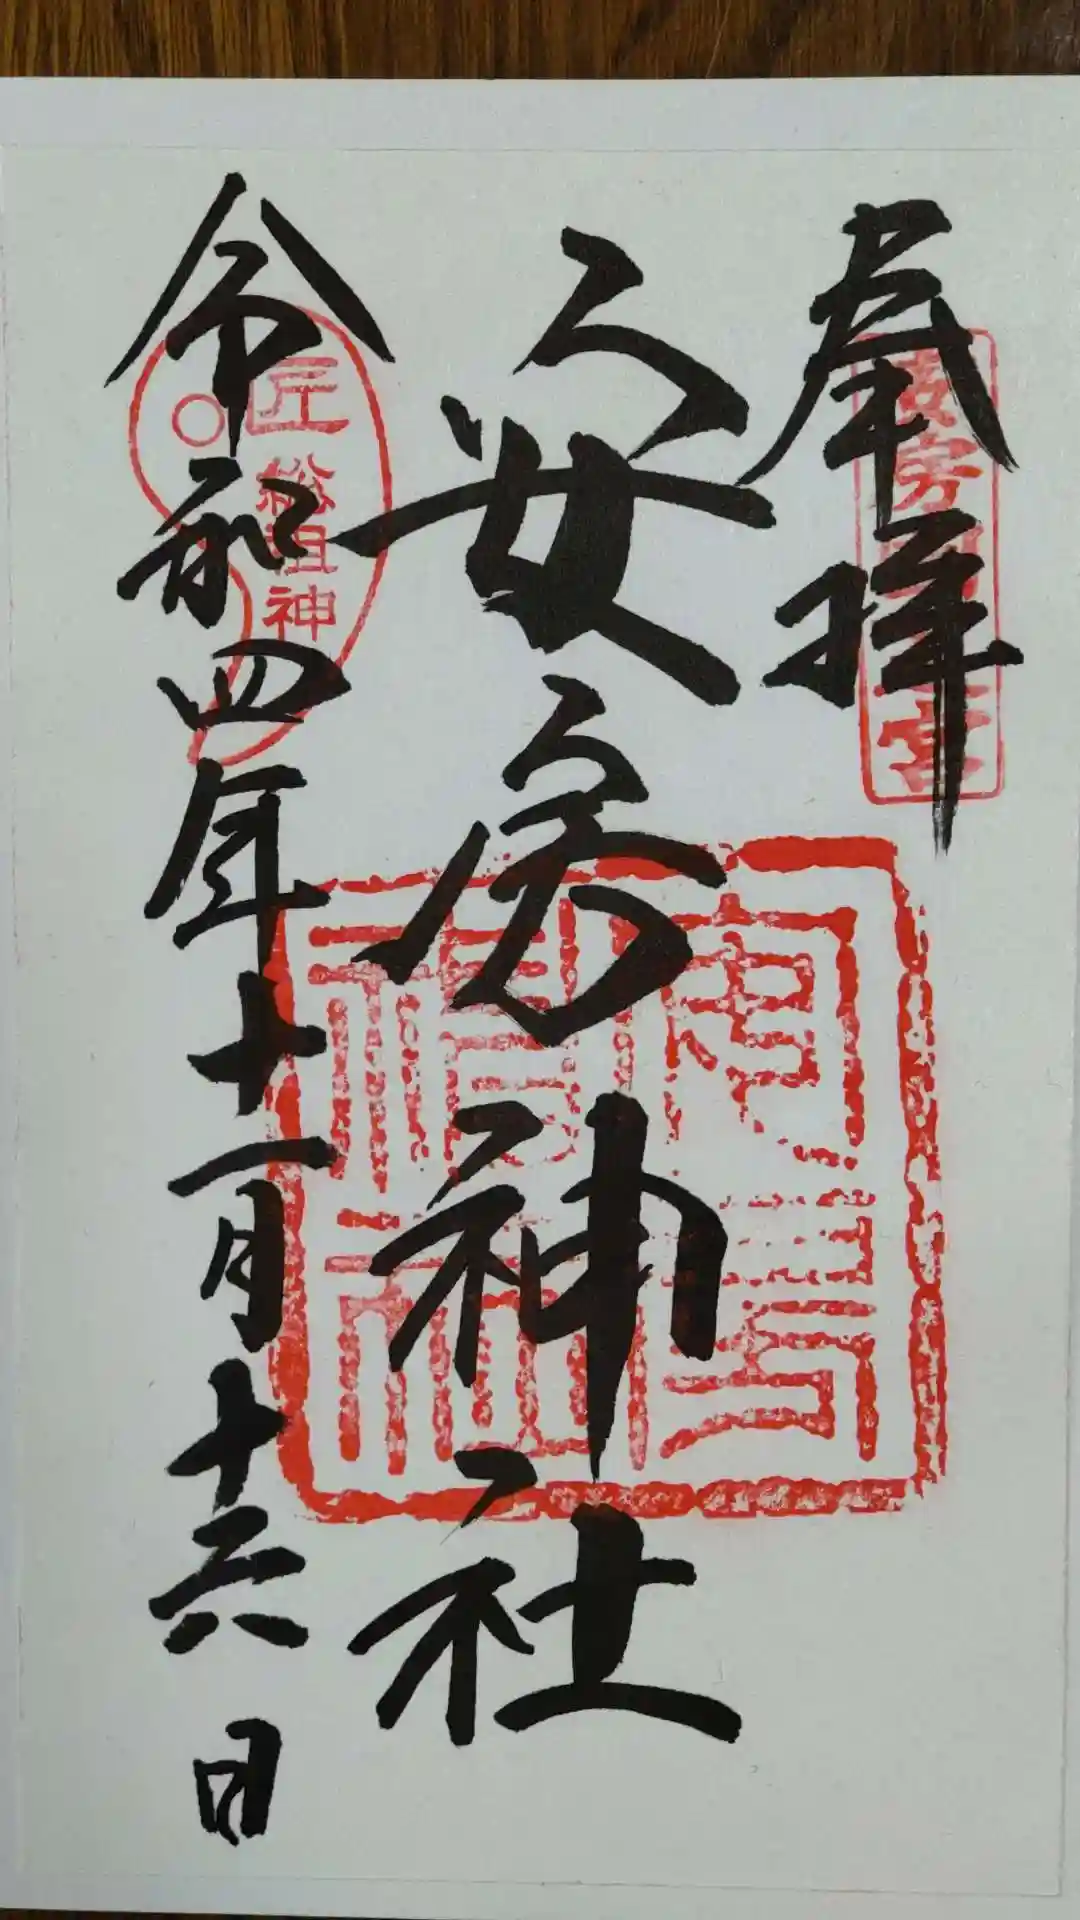 奉拝
安房國一之宮
安房神社
令和四年十一月十六日
総祖神